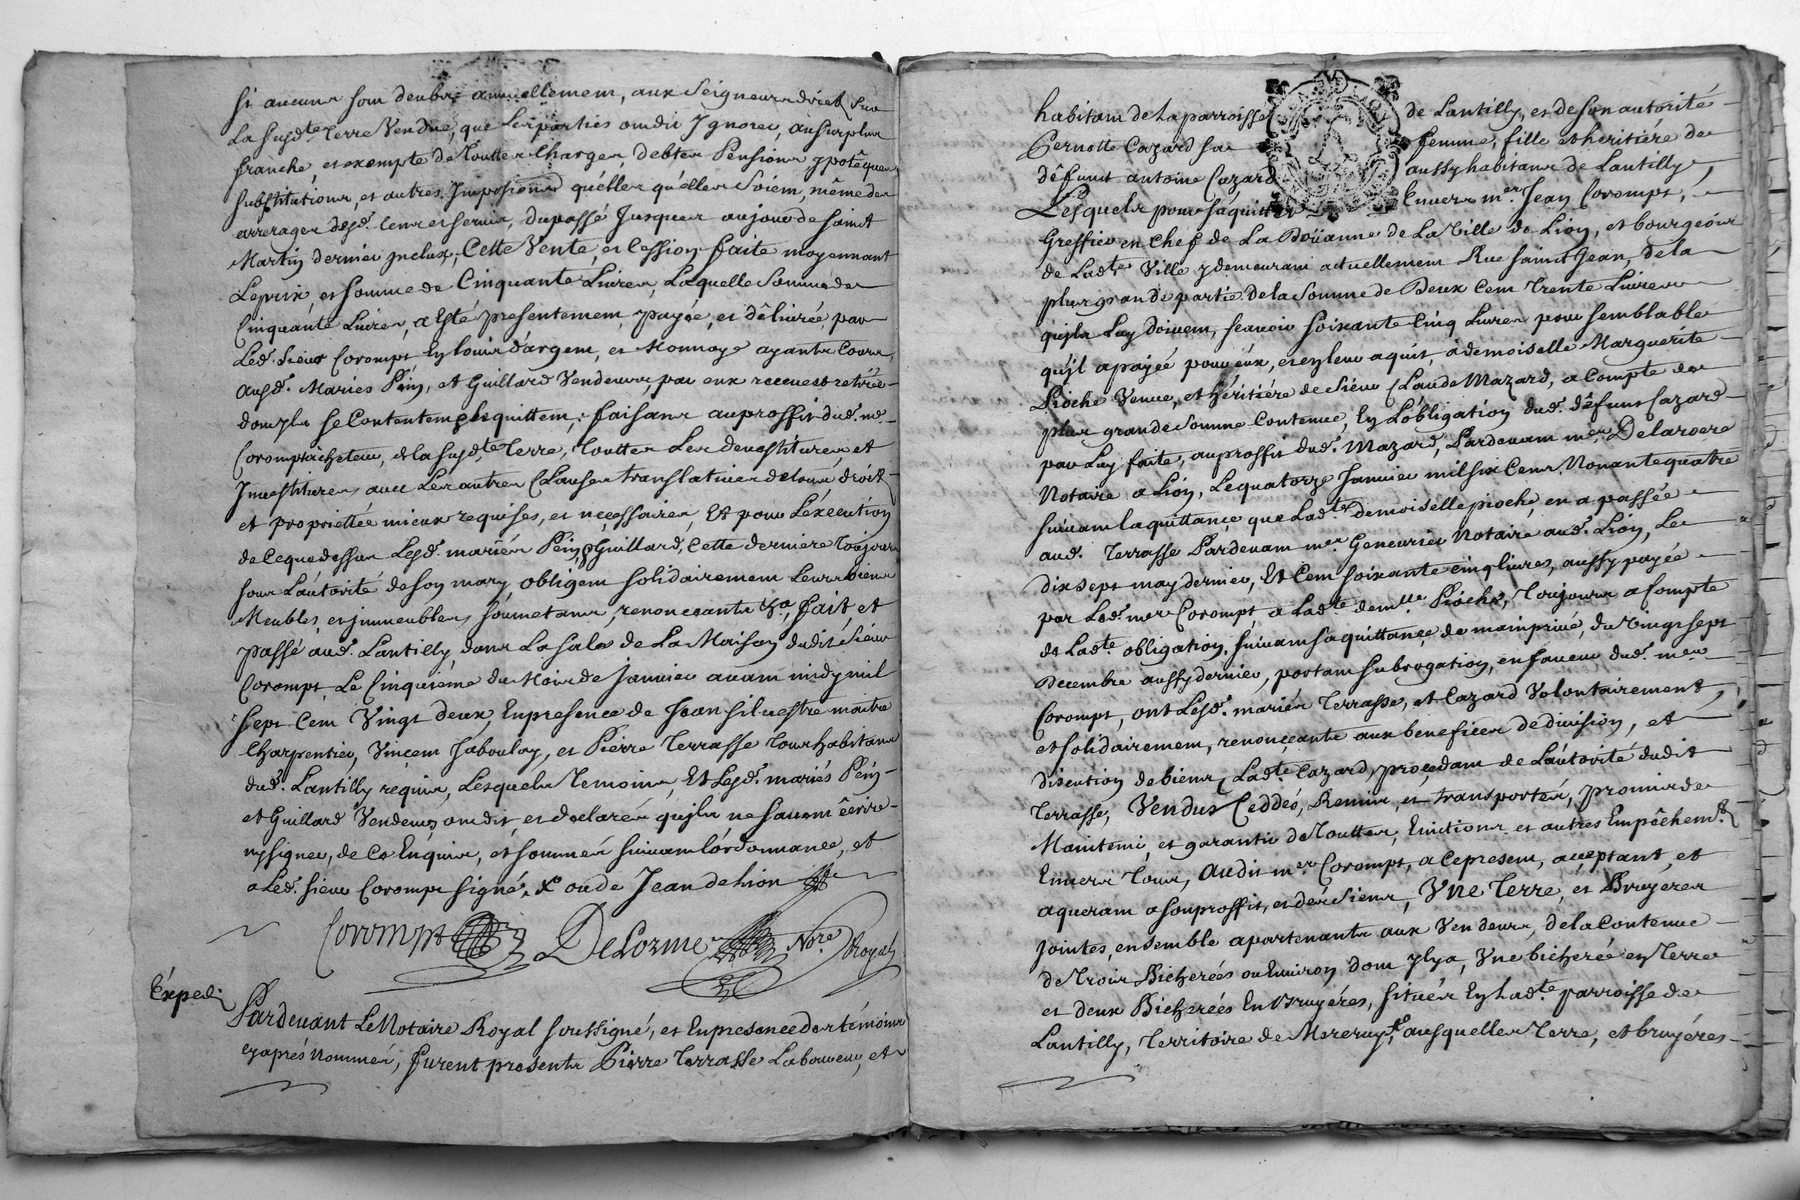 si aucuns sont deubs annuellement, aux Seigneurs direct sur
La susd.te Terre Vendue, que Les parties ont dit Ignorer, au surplus
franche, et exempte de Touttes Charges, debtes Pensions ypotêques
substitutions, et autres Imposions quélles qu'élles Soient, même des
arrerages desd. Cens et servis, du passé Jusques au jour de saint
Martin dernier inclus; Cette Vente, et Cession faite moyennant
Le prix, et somme de Cinquante Livres, Laquelle Somme de
Cinquante Livres, a Esté presentement, payée, et délivrée, par
Led. sieur Corompt En louis d'argent, et Monnoye ayants Cours,
Ausd. Mariés Péin, et Guillard Vendeurs, par eux receue et retirée
dont ils se Contentent, et quittent; faisants au proffit dud. me.
Corompt acheteur, de la susd.te Terre, Touttes Les devestitures et
Investitures, avec Les autres Clauses translatives de tout droit
et proprietée mieux requises, et necessaires, Et pour L'éxécution
de Ce que dessus Lesd. mariés Péin, et Guillard, Cette derniere Toujours
sous L'autorité de son mary, obligent solidairement Leurs biens
Meubles, et immeubles, soumetants, renonceants &a, fait et
passé aud. Lantilly, dans La Sale de La Maison dudit sieur
Corompt Le Cinquieme du Mois de Janvier avant midy mil
sept Cent Vingt deux, En presence de Jean silvestre maitre
Charpentier, Vincent Jaboulay, et Pierre Terrasse Tous habitans
dud. Lantilly requis, Lesquels Temoins, Et Lesd. mariés Péin
et Guillard Vendeurs ont dit, et declaré qu'ils ne savent écrire
ny signer, de Ce Enquis, et sommés suivant L'ordonnance, et
a Led. sieur Corompt signé,
Corompt DeLorme No.re Royal
Expedi.
Pardevant Le Notaire Royal soussigné, et En presence des témoins
cy aprés nommés, furent presents Pierre Terrasse Laboureur, et
habitant de La parroisse de Lantilly, et de son autorité
Pernotte Cazard sa femme, fille et heritiére de
défunt antoine Cazard aussy habitans de Lantilly,
Lesquels pour s'aquitter Envers m.er Jean Corompt,
Greffier en Chef de La Doüanne de La Ville de Lion, et bourgeois
de Ladte Ville y demeurant actuellement Rue saint Jean, de la
plus grande partie de la Somme de Deux Cent Trente Livres
qu'ils Luy doivent, scavoir soixante Cinq Livres, pour semblable
qu'il a payée pour eux, et en leur aquit, a demoiselle Marguérite
Pioche Veuve, et héritiére de sieur Claude Mazard, a Compte de
plus grande Somme Contenue, En L'obligation dud. défunt Cazard
par Luy faite, au proffit dud. Mazard, Pardevant m.er Delaroere
Notaire a Lion, Le quatorze Janvier mil six Cent Nonante quatre
suivant la quittance que Lad.te demoiselle pioche, en a passée
aud. Terrasse Pardevant m.er Genevrier Notaire aud. Lion, Le
dix sept may dernier, Et Cent soixante cinq livres, aussy payée
par Led. mer Corompt, a Ladte demlle Pioche, Toujours a Compte
de Ladte obligation, suivant sa quittance de main privé, du Vingt sept
Decembre aussy dernier, portant subrogation, en faveur dud. mer
Corompt, ont Lesd. mariés Terrasse, et Cazard Volontairement,
et solidairement, renonceants aux benefices de division, et
discution de biens, Ladte Cazard, procedant de L'autorité dudit
Terrasse, Vendus Ceddés, Remis, et transportés, promis de
Maintenir, et garantir de Touttes, Evictions et autres Empêchemts
Envers Tous, Audit m.er Corompt, a Ce present, acceptant, et
aquerant a son proffit, et des Siens, Vne Terre, et Bruyéres
Jointes, ensemble apartenants aux Vendeurs, de la Contenue
de Trois Bicherées ou Environ, dont y Ly a, Vne bicherée en Terre
et deux Bicherées En Bruyéres, situés En Lad.te parroisse de
Lantilly, Territoire de Mereruy, ausquelles Terre, et bruyéres